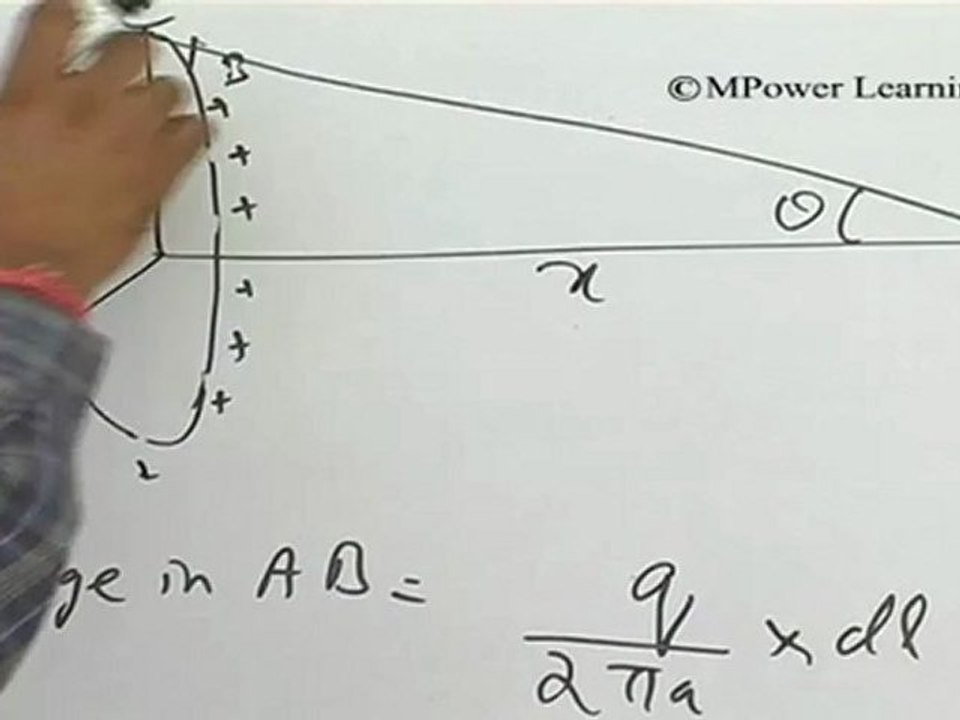 B
©MPower Learnin
+
+
+
θ
x
+
+
+
ge in AB = q/2πa × dl